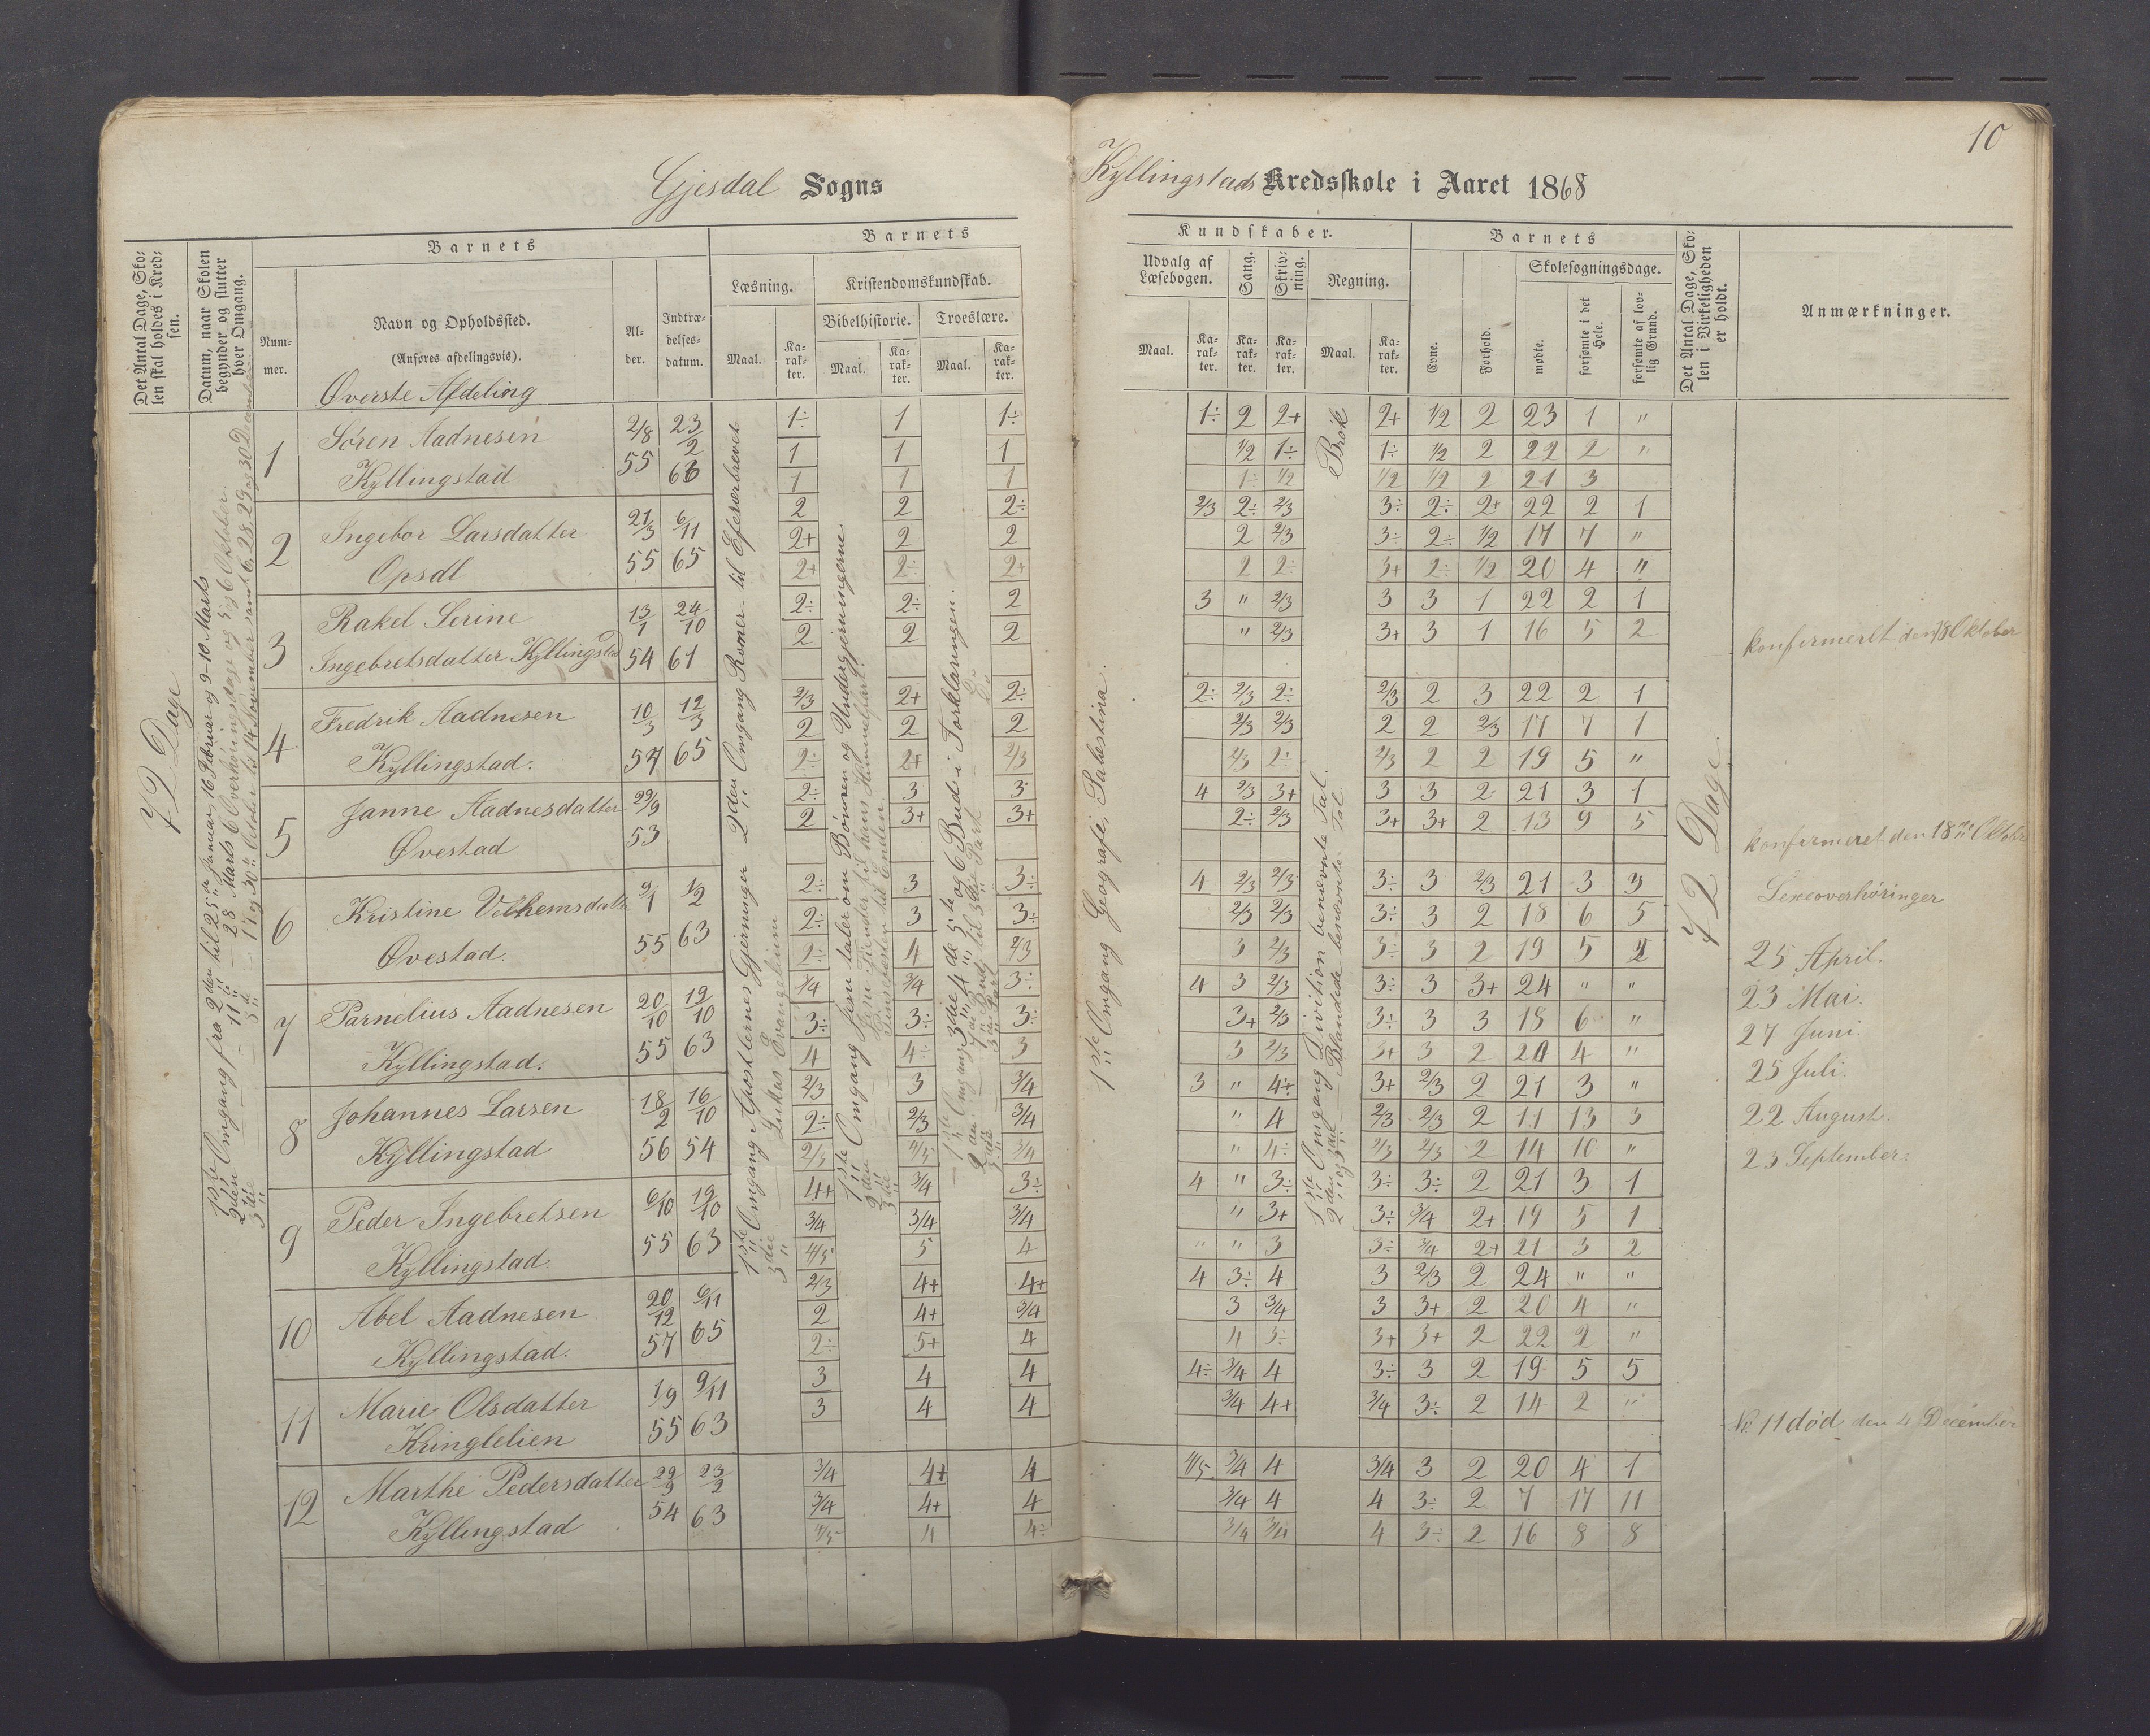 10
Gjesdal Sogns
Kyllingstads Kredsskole i Aaret 1868
Det Antal Dage, Skolen skal holdes i Kredsen.
Datum, naar Skolen begynder og slutter hver Omgang.
Barnets
Nummer.
Navn og Opholdssted.
(Anføres afdelingsvis).
Alder.
Indtrædelsesdatum.
Barnets
Læsning.
Kristendomskundskab.
Bibelhistorie.
Troeslære.
Maal.
Karakter.
Maal.
Karakter.
Maal.
Karakter.
Kundskaber.
Udvalg af Læsebogen.
Sang.
Skrivning.
Regning.
Maal.
Karakter.
Karakter.
Karakter.
Maal.
Karakter.
Barnets
Evne.
Forhold.
Skolesøgningsdage.
mødte.
forsømte i det Hele.
forsømte af lovlig Grund.
Det Antal Dage, Skolen i Virkeligheden er holdt.
Anmærkninger.
Øverste Afdeling
72 Dage
1 Søren Aadnesen 2/8 55 23/2 63
Kyllingstad
1÷ 1 1÷ 1÷ 2 2+ 2+ 1/2 2 23 1 "
1 1 1 1/2 1÷ 1÷ 1/2 2 22 2 "
1 1 1 1÷ 1/2 1/2 1/2 2 21 3
2 Ingebor Larsdatter 21/3 55 6/11 65
Opsdl
2 2 2÷ 2/3 2÷ 2/3 3÷ 2÷ 2+ 22 2 1
2+ 2 2 2 2/3 3÷ 2÷ 1/2 17 7 "
2+ 2÷ 2+ 2 2÷ 3+ 2÷ 1/2 20 4 "
3 Rakel Serine 13/1 54 24/10 61
Ingebretsdatter Kyllingstad
2÷ 2÷ 2 3 " 2/3 3 3 1 22 2 1
2 2 2 " 2/3 3+ 3 1 16 5 2
4 Fredrik Aadnesen 10/3 57 12/3 65
Kyllingstad.
2/3 2+ 2÷ 2÷ 2/3 2÷ 2/3 2 3 22 2 1
2 2 2 2/3 2/3 2 2 2/3 17 7 1
2÷ 2+ 2/3 2/3 2÷ 2/3 2 2 19 5 "
5 Janne Aadnesdatter 29/9 53
Øvestad
2÷ 3 3 4 2/3 3+ 3 3 2 21 3 1
2 3+ 3+ 2÷ 2/3 3+ 3+ 2 13 9 5
6 Kristine Velhemsdatter 9/1 55 1/2 63
Øvestad.
2÷ 3 3÷ 4 2/3 2/3 3÷ 3 2/3 21 3 3
2÷ 3 3÷ 2/3 2/3 3÷ 3 2 18 6 5
2÷ 4 2/3 3 2/3 3÷ 3 2 19 5 2
7 Parnelius Aadnesen 20/10 55 19/10 63
Kyllingstad.
3/4 3/4 3÷ 4 3 2/3 3÷ 3 3+ 24 " "
3÷ 3÷ 3÷ 3+ 2/3 3÷ 3 3 18 6 "
4 4÷ 3 3 2/3 3+ 3 2 20 4 "
8 Johannes Larsen 18/2 56 16/10 54
Kyllingstad
2/3 3 3/4 3 " 4+ 3+ 2/3 2 21 3 "
2÷ 2/3 3/4 " 4 2/3 2/3 2 11 13 3
2/3 4/5 3/4 " 4÷ 2/3 2/3 2 14 10 "
9 Peder Ingebretsen 6/10 55 19/10 63
Kyllingstad.
4+ 3/4 3÷ 4 " 3÷ 3÷ 3÷ 2 21 3 1
3/4 3/4 3/4 " 3+ 3÷ 3/4 2+ 19 5 1
4/5 5 4 " " 3 3÷ 3/4 2+ 21 3 2
10 Abel Aadnesen 20/12 57 6/11 65
Kyllingstad.
2/3 4+ 4+ 4 3÷ 4 3 2/3 2 24 " "
2 4+ 3/4 3 3/4 3 3+ 2 20 4 "
2÷ 5+ 4 4 3÷ 3+ 3+ 2 22 2 "
11 Marie Olsdatter 1/9 55 9/11 63
Kringlelien
3 4 4 4÷ 3/4 4 3÷ 3 2 19 5 5
3 4 4 3/4 4+ 3/4 3÷ 2 14 2 "
12 Marthe Pedersdatter 29/9 54 23/2 63
Kyllingstad
3/4 4+ 4 4/5 3/4 4 3/4 3 2 20 4 1
3/4 4+ 4 3/4 4 4 3÷ 2 7 17 11
4/5 4 4÷ 3/4 3/4 4 3÷ 2 16 8 8
1ste Omgang fra 2den til 25de Januar, 16 Februar og 9-10 Marts
2den - 11te - 28 Marts 6 Overhøringsdage og 5 og 6 Oktober.
3die - 17 og 30te October til 14 November samt 6, 28, 29 og 30 December
1ste Omgang Apostlernes Gjerninger 2den Omgang Romer- til Efeserbrevet
3die Lukas Evangelium
1ste Omgang Jesu taler om Bønnen og Undergjerningerne
2den Jesu fiender til hans Himmelfart.
3die Pinsefesten til Enden
1ste Omgang 3die 4de 5te og 6 Bud i Forklaringen.
1ste Omgang Geografi, Palestina.
1ste Omgang Division benævnte Tal.
2den og 3die Blandede benævnte Tal.
Brøk
72 Dage.
konfirmeret den 18 Oktober
konfirmeret den 18de Oktober
Lexeoverhøringer
25 April.
23 Mai.
27 Juni.
25 Juli.
22 August.
23 September.
No. 11 død den 4 December